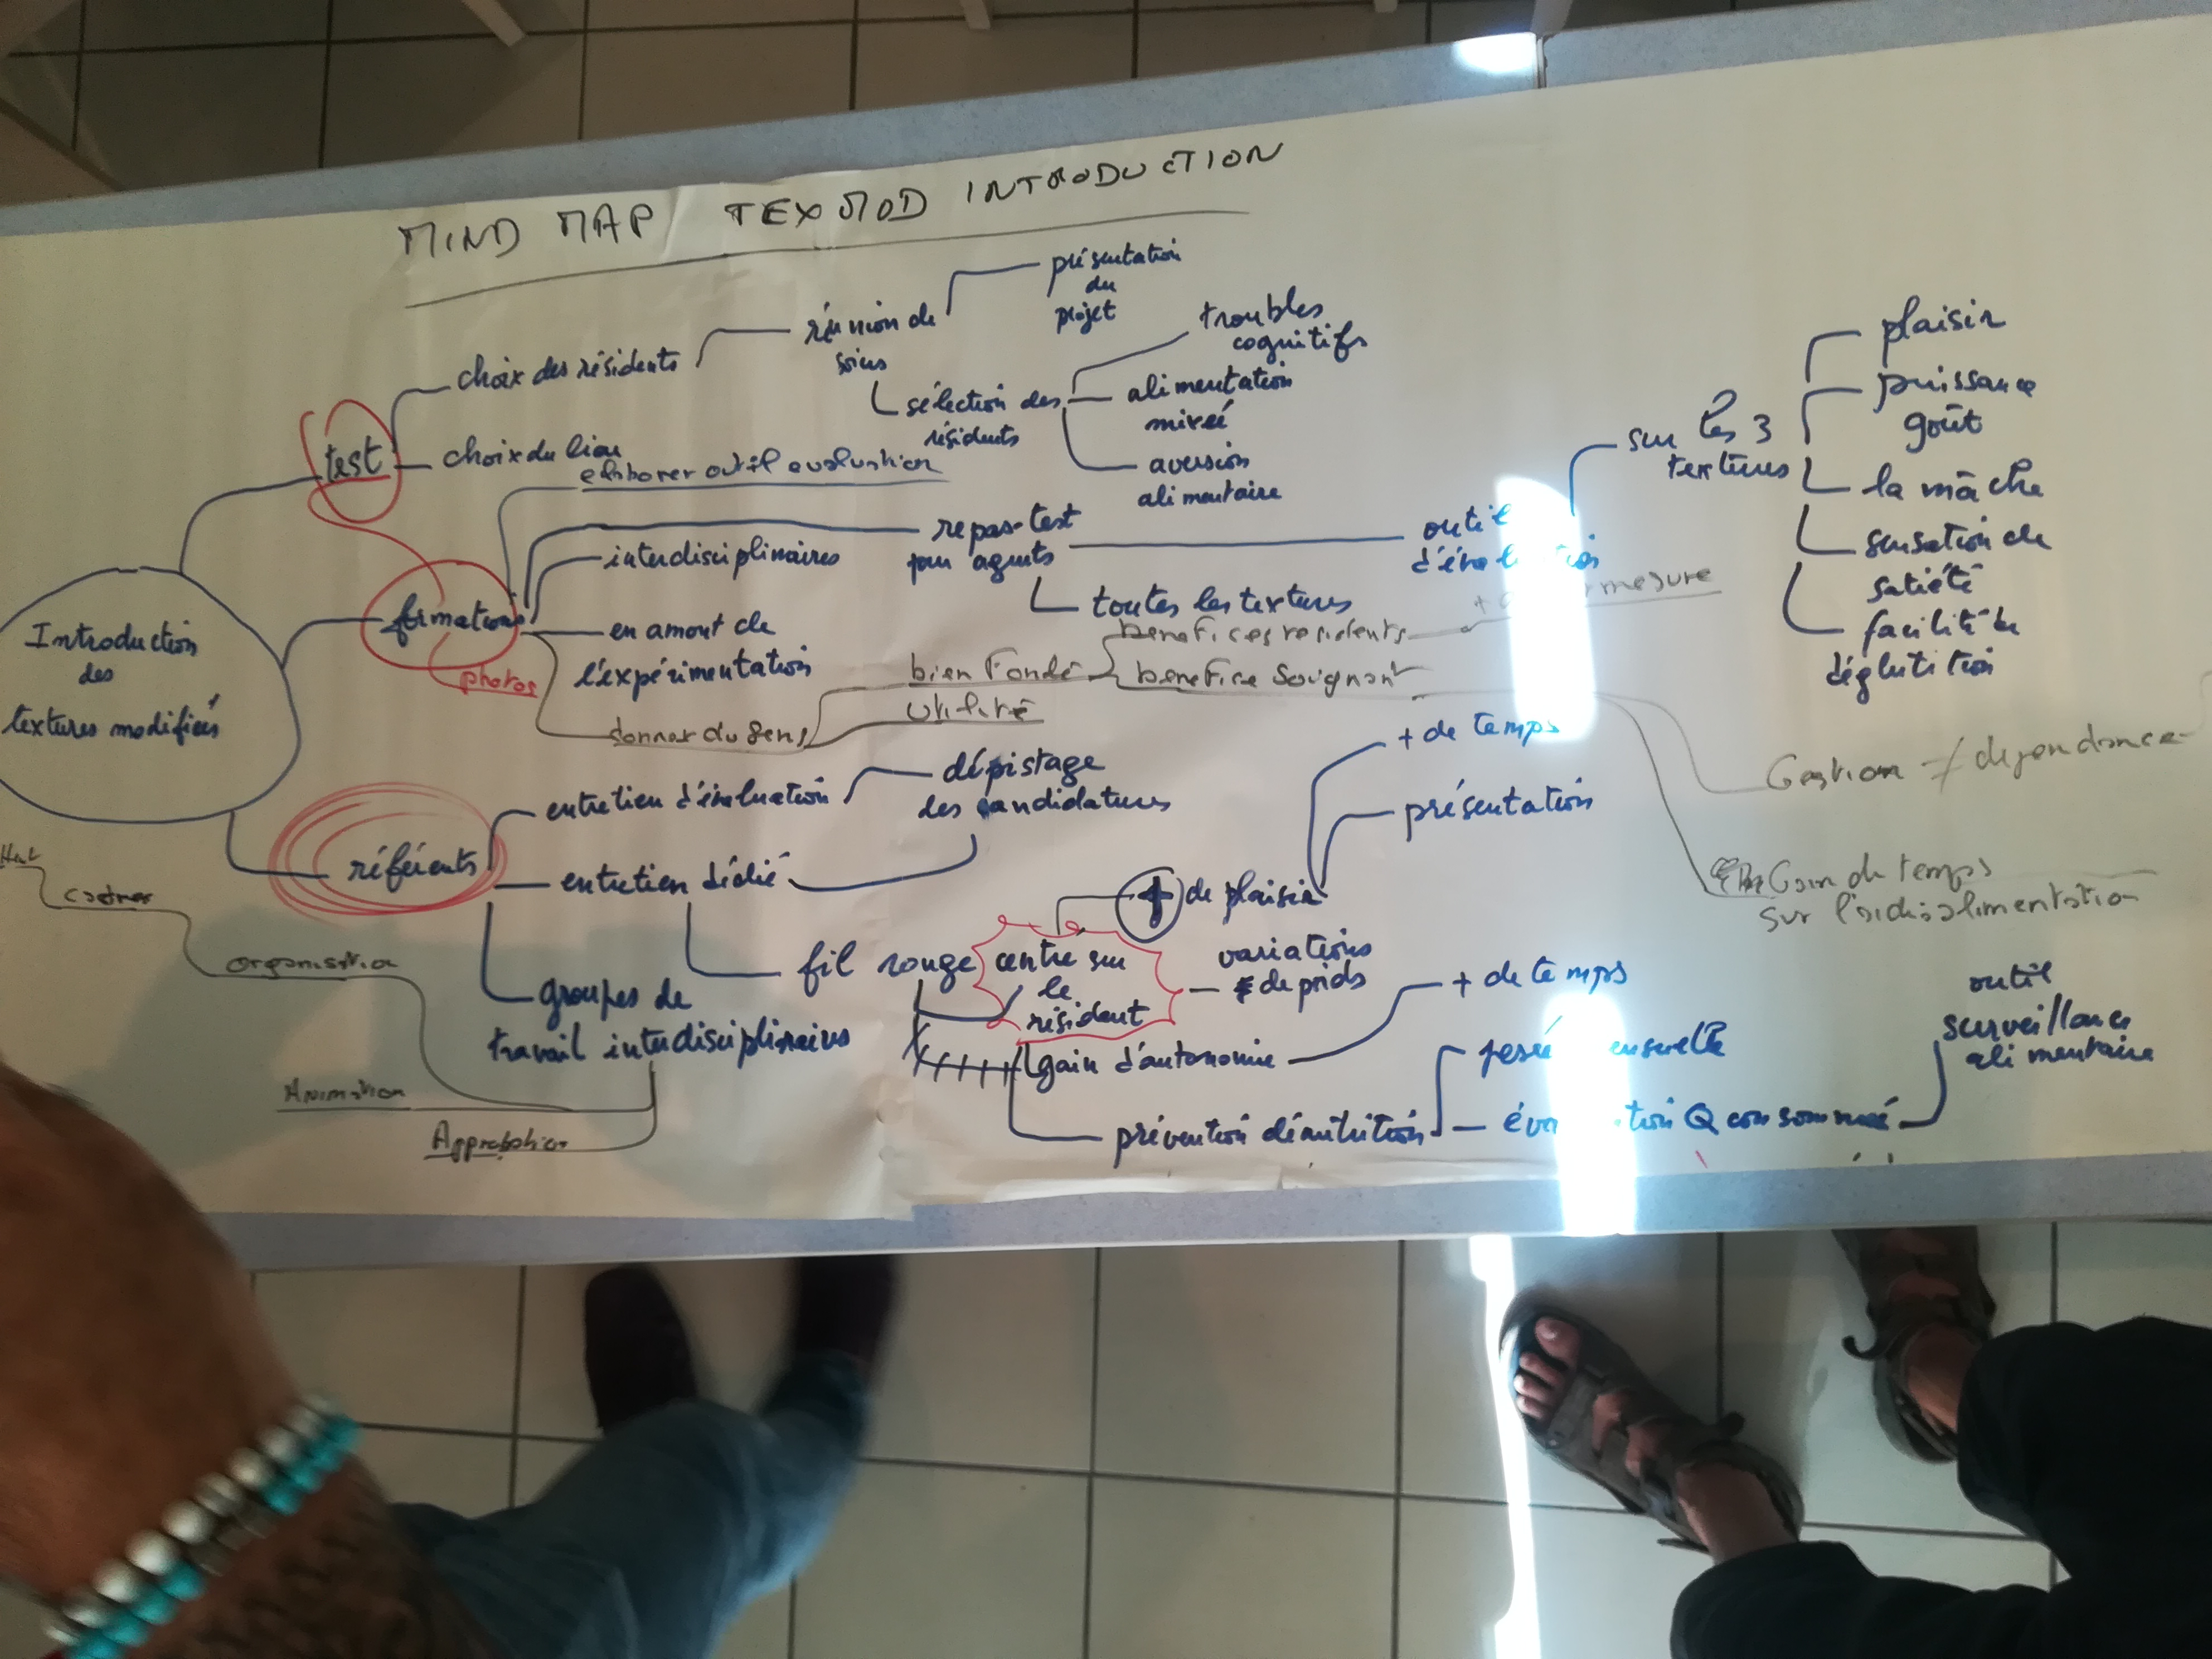 MIND MAP / TEXMOD INTRODUCTION
présentation
du
projet
réunion de
soins
choix des résidents
troubles
cognitifs
sélection des
résidents
alimentation
mixée
aversion
alimentaire
test
choix du lieu
elaborer outil evaluation
repas-test
pour agents
interdisciplinaires
outil
toutes les textures
sur les 3
textures
plaisir
puissance
goût
la mâche
sensation de
satiété
facilité de
déglutition
Introduction
des
textures modifiées
formations
photos
en amont de
l'expérimentation
donner du sens
bien Fondé
utilité
benefices residents
mesure
benefice Soignant
Gestion ≠ dependance
Gain de temps
sur l'aide alimentation
référents
entretien d'évaluation
dépistage
des candidatures
entretien dédié
groupes de
travail interdisciplinaires
organisation
Animation
Approbation
fil rouge
centre sur
le
résident
+ de plaisir
+ de temps
présentation
variations
de poids
gain d'autonomie
+ de temps
prévention dénutrition
Q consommée
outil
surveillance
alimentaire